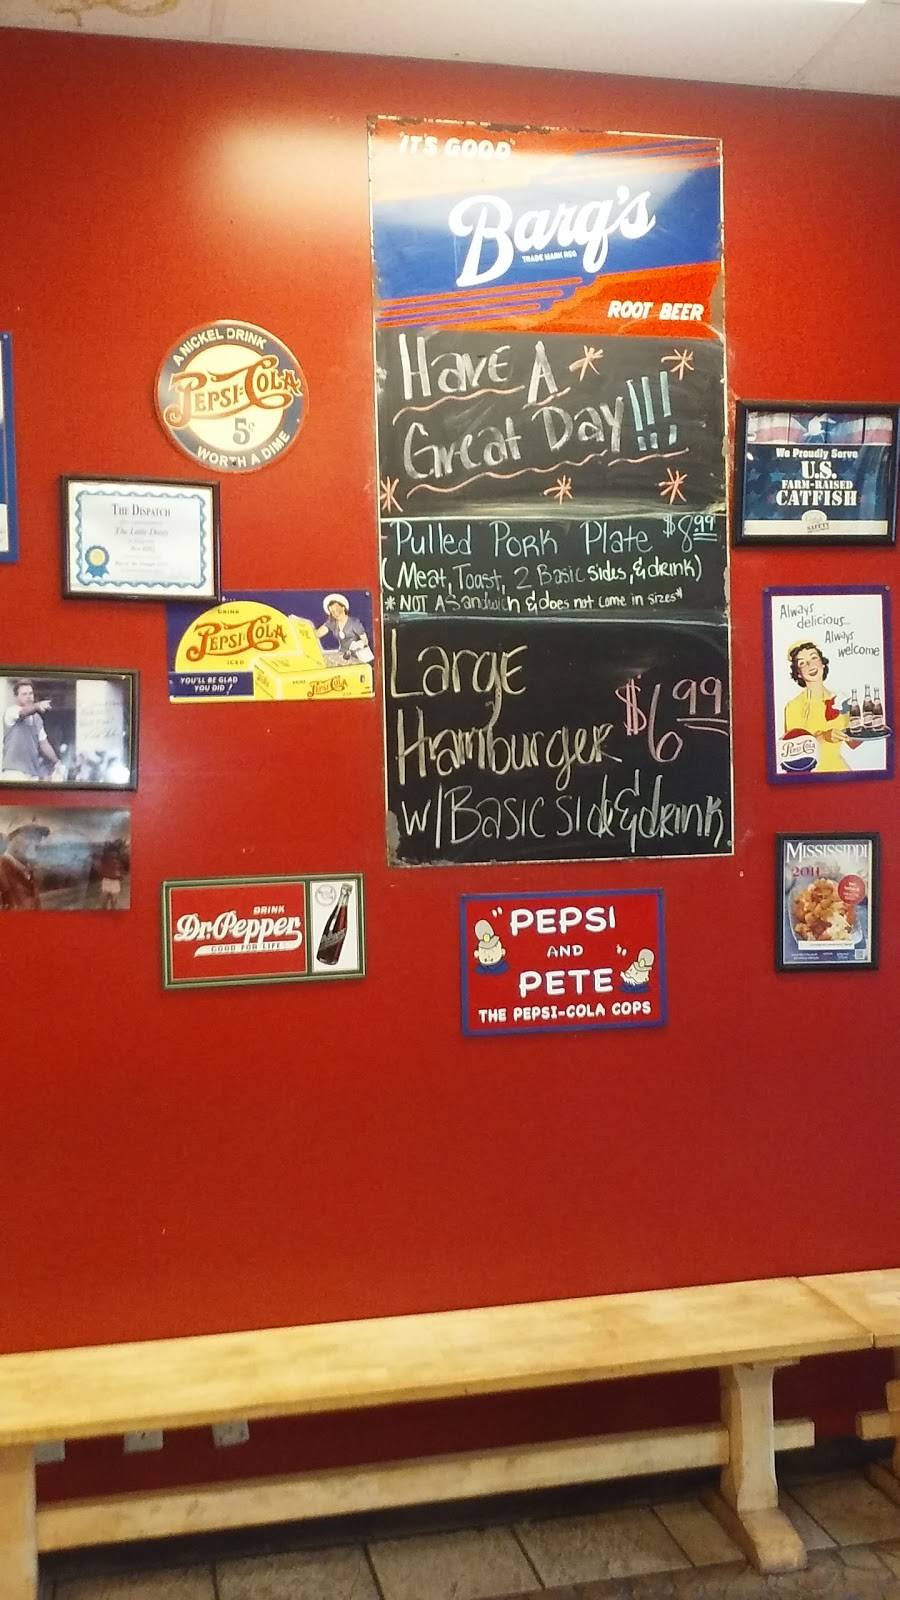 "IT'S GOOD"
Barq's
TRADE MARK REG
ROOT BEER
Have A
Great Day!!!
Pulled Pork Plate $8.99
(Meat, Toast, 2 Basic sides, & drink)
*NOT A Sandwich & does not come in sizes*
Large
Hamburger $6.99
w/ Basic side & drink
A NICKEL DRINK
PEPSI-COLA
5¢
WORTH A DIME
THE DISPATCH
The Little Dooey
DRINK
PEPSI-COLA
ICED
YOU'LL BE GLAD
YOU DID!
PEPSI-COLA
DRINK
Dr. Pepper
GOOD FOR LIFE
"PEPSI
AND
PETE"
THE PEPSI-COLA COPS
We Proudly Serve
U.S.
FARM-RAISED
CATFISH
SAFETY
Always
delicious...
Always
welcome
PEPSI-COLA
MISSISSIPPI
2011